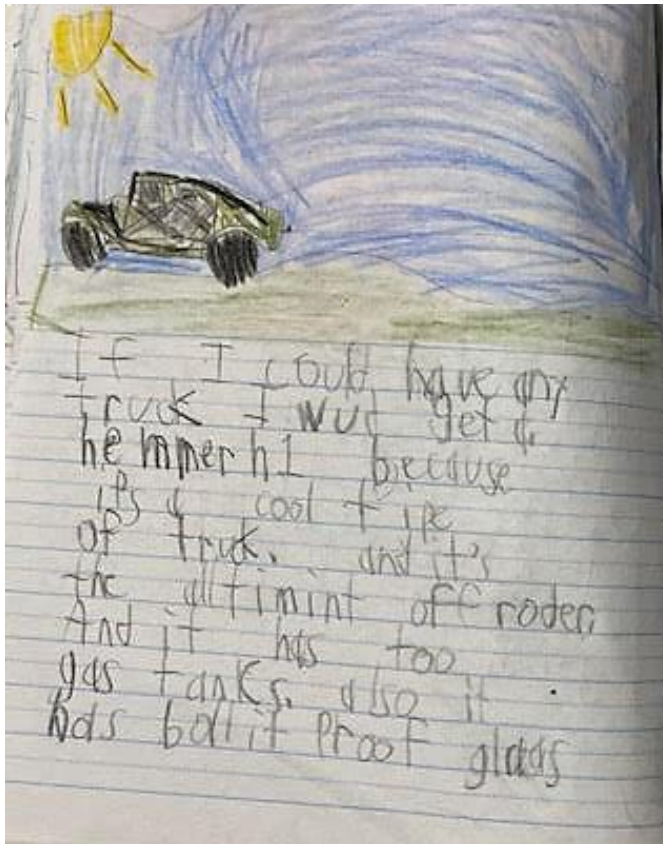 If I could have any
truck I wud get a
hemmer h1 because
it's a cool tipe
of truck. and it's
the alltimint off roder.
And it has too
gas tanks. also it
has bollit Proof glaas